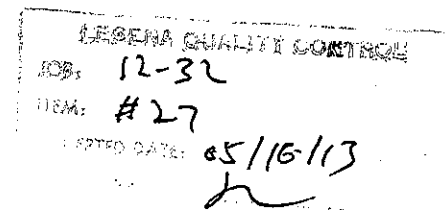 LEBENA QUALITY CONTROL
JOB: 12-32
ITEM: #27
DATE: 05/16/13